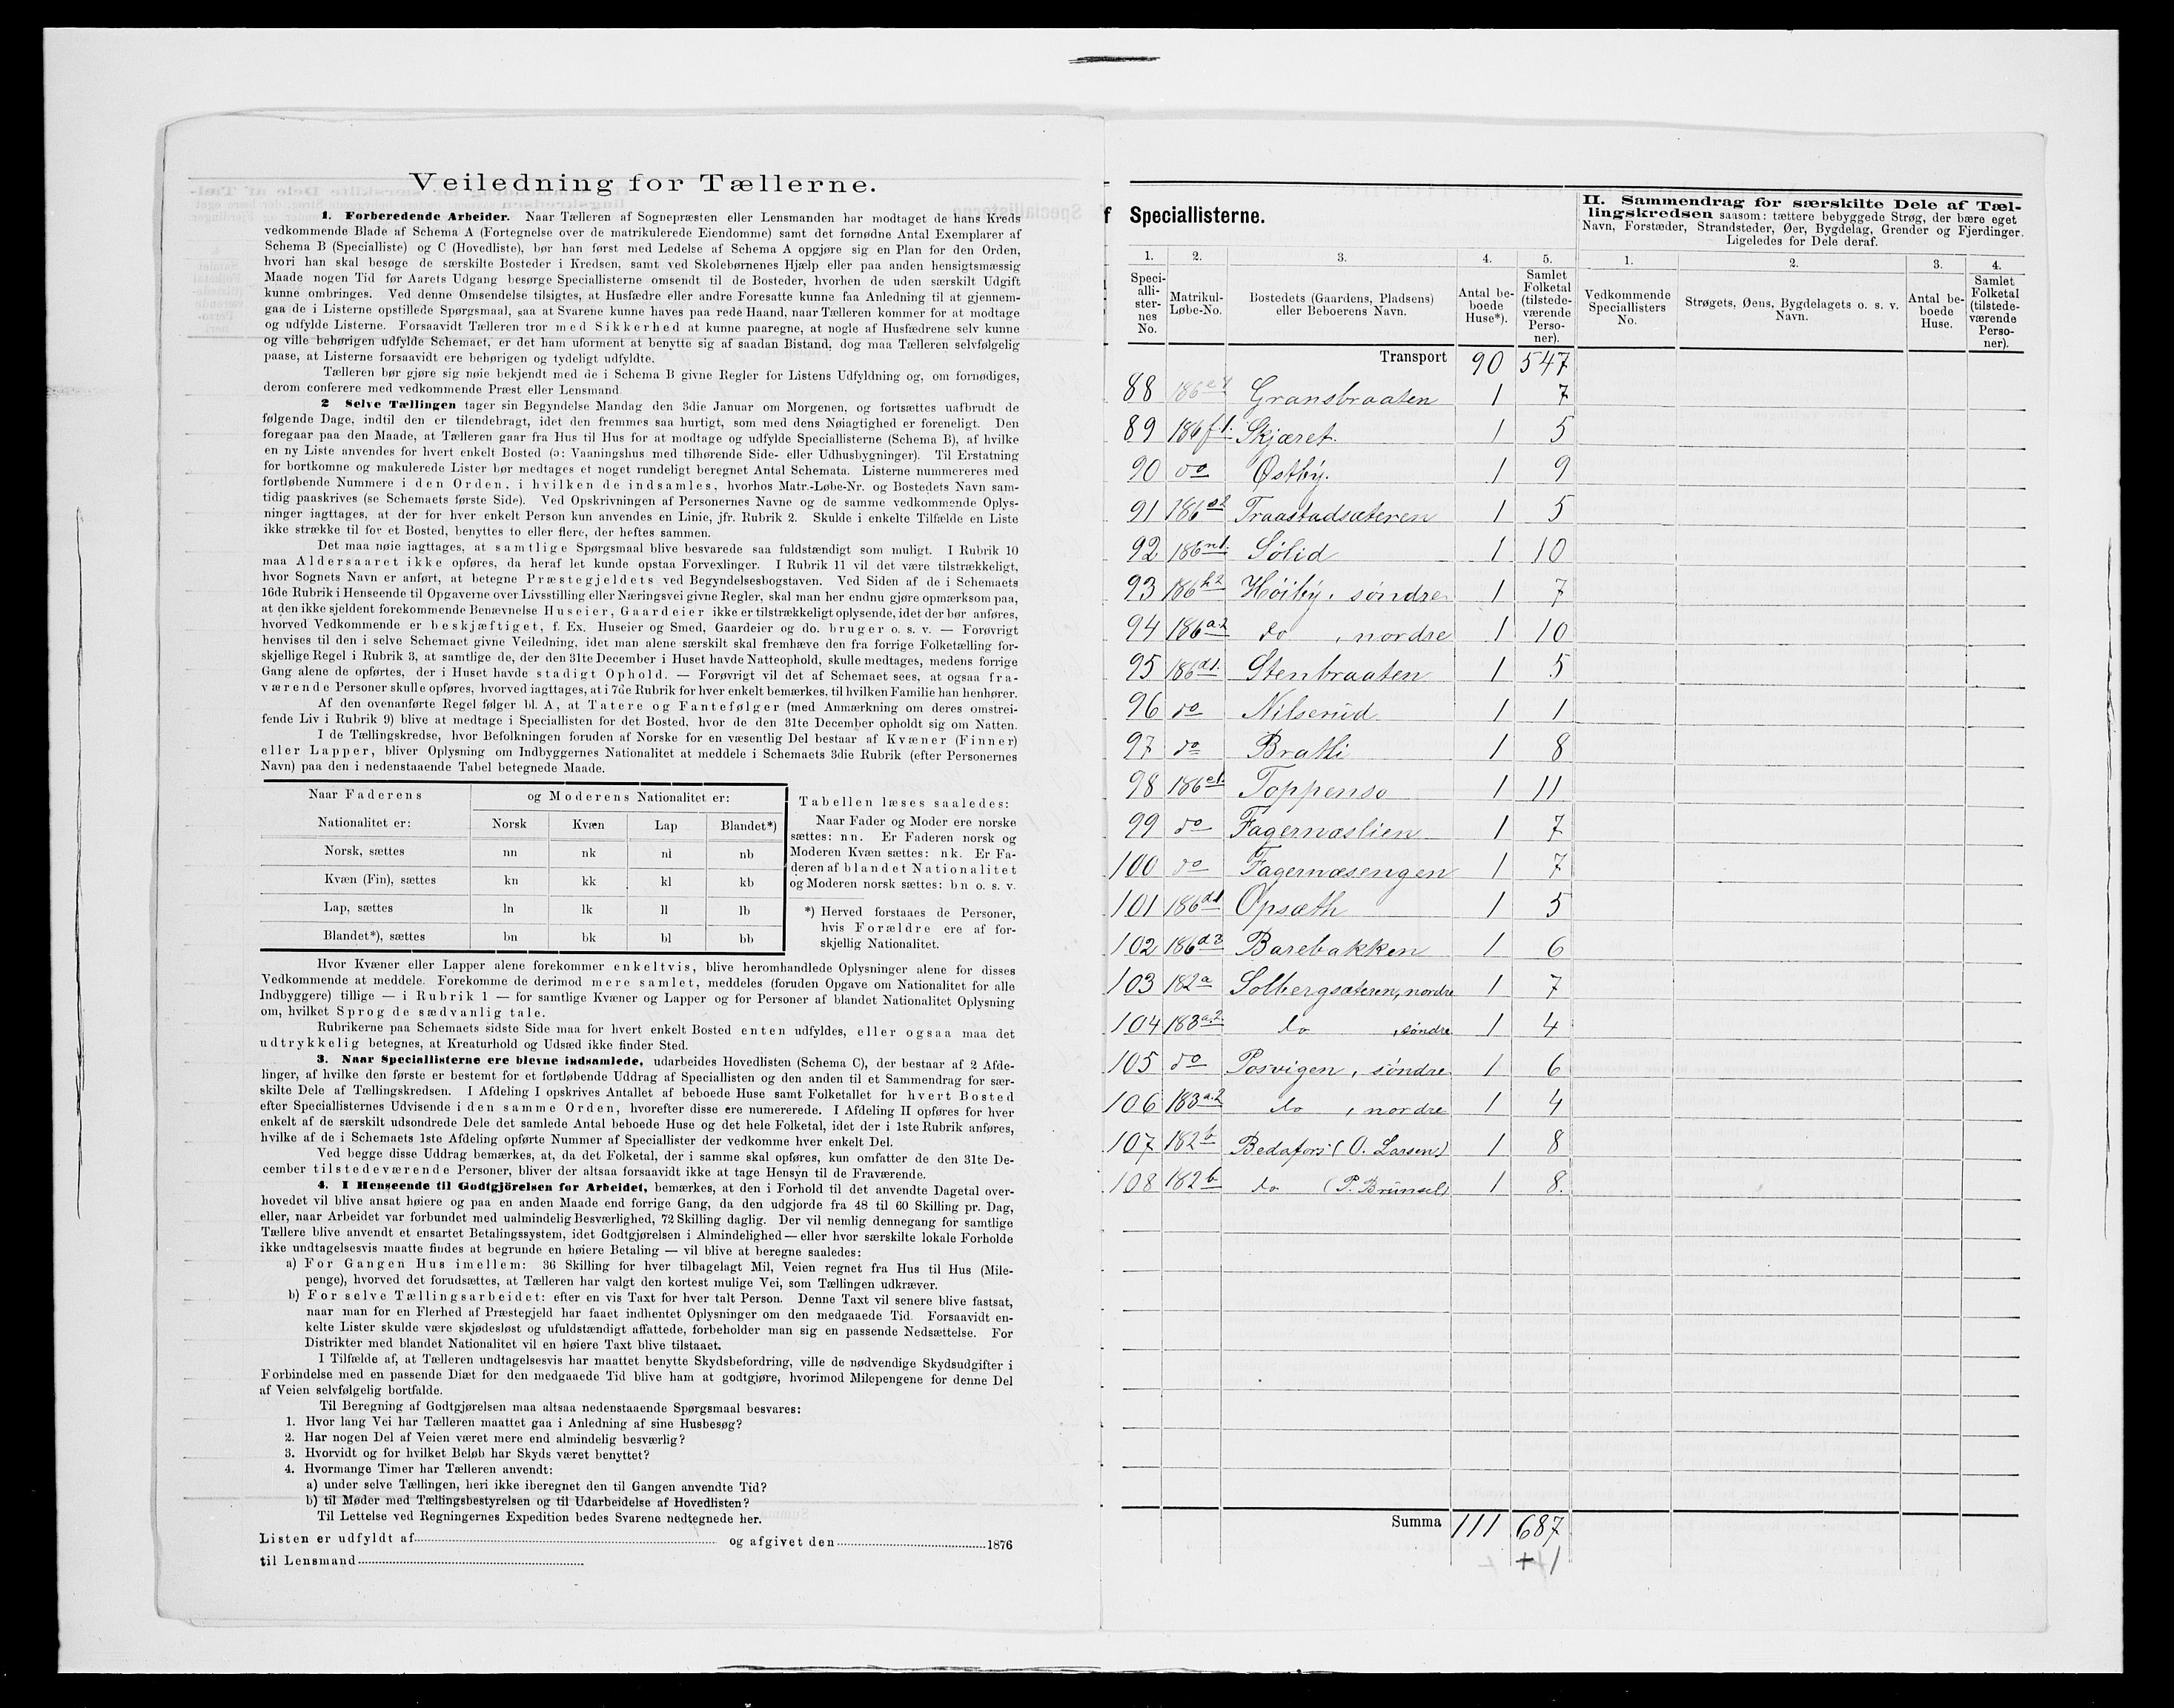 Veiledning for Tællerne.
1. Forberedende Arbeider. Naar Tælleren af Sognepræsten eller Lensmanden har modtaget de hans Kreds
vedkommende Blade af Schema A (Fortegnelse over de matrikulerede Eiendomme) samt det fornødne Antal Exemplarer af
Schema B (Specialliste) og C (Hovedliste), bør han først med Ledelse af Schema A opgjøre sig en Plan for den Orden,
hvori han skal besøge de særskilte Bosteder i Kredsen, samt ved Skolebørnenes Hjælp eller paa anden hensigtsmæssig
Maade nogen Tid før Aarets Udgang besørge Speciallisterne omsendt til de Bosteder, hvorhen de uden særskilt Udgift
kunne ombringes. Ved denne Omsendelse tilsigtes, at Husfædre eller andre Foresatte kunne faa Anledning til at gjennem-
gaa de i Listerne opstillede Spørgsmaal, saa at Svarene kunne haves paa rede Haand, naar Tælleren kommer for at modtage
og udfylde Listerne. Forsaavidt Tælleren tror med Sikkerhed at kunne paaregne, at nogle af Husfædrene selv kunne
og ville behørigen udfylde Schemaet, er det ham uforment at benytte sig af saadan Bistand, dog maa Tælleren selvfølgelig
paase, at Listerne forsaavidt ere behørigen og tydeligt udfyldte.
Tælleren bør gjøre sig nøie bekjendt med de i Schema B givne Regler for Listens Udfyldning og, om fornødiges,
derom conferere med vedkommende Præst eller Lensmand
2 Selve Tællingen tager sin Begyndelse Mandag den 3die Januar om Morgenen, og fortsættes uafbrudt de
følgende Dage, indtil den er tilendebragt, idet den fremmes saa hurtigt, som med dens Nøiagtighed er foreneligt. Den
foregaar paa den Maade, at Tælleren gaar fra Hus til Hus for at modtage og udfylde Speciallisterne (Schema B), af hvilke
en ny Liste anvendes for hvert enkelt Bosted (ɔ: Vaaningshus med tilhørende Side- eller Udhusbygninger). Til Erstatning
for bortkomne og makulerede Lister bør medtages et noget rundeligt beregnet Antal Schemata. Listerne nummereres med
fortløbende Nummere i den Orden, i hvilken de indsamles, hvorhos Matr.-Løbe-Nr. og Bostedets Navn sam-
tidig paaskrives (se Schemaets første Side). Ved Opskrivningen af Personernes Navne og de samme vedkommende Oplys-
ninger iagttages, at der for hver enkelt Person kun anvendes en Linie, jfr. Rubrik 2. Skulde i enkelte Tilfælde en Liste
ikke strække til for et Bosted, benyttes to eller flere, der heftes sammen.
Det maa nøie iagttages, at samtlige Spørgsmaal blive besvarede saa fuldstændigt som muligt. I Rubrik 10
maa Aldersaaret ikke opføres, da heraf let kunde opstaa Forvexlinger. I Rubrik 11 vil det være tilstrækkeligt,
hvor Sognets Navn er anført, at betegne Præstegjeldets ved Begyndelsesbogstaven. Ved Siden af de i Schemaets
16de Rubrik i Henseende til Opgaverne over Livsstilling eller Næringsvei givne Regler, skal man her endnu gjøre opmærksom paa,
at den ikke sjeldent forekommende Benævnelse Huseier, Gaardeier ikke er tilstrækkeligt oplysende, idet der bør anføres,
hvorved Vedkommende er beskjæftiget, f. Ex. Huseier og Smed, Gaardeier og do. bruger o. s. v. — Forøvrigt
henvises til den i selve Schemaet givne Veiledning, idet man alene særskilt skal fremhæve den fra forrige Folketælling for-
skjellige Regel i Rubrik 3, at samtlige de, der den 31te December i Huset havde Natteophold, skulle medtages, medens forrige
Gang alene de opførtes, der i Huset havde stadigt Ophold. — Forøvrigt vil det af Schemaet sees, at ogsaa fra-
værende Personer skulle opføres, hvorved iagttages, at i 7de Rubrik for hver enkelt bemærkes, til hvilken Familie han henhører.
Af den ovenanførte Regel følger bl. A, at Tatere og Fantefølger (med Anmærkning om deres omstrei-
fende Liv i Rubrik 9) blive at medtage i Speciallisten for det Bosted, hvor de den 31te December opholdt sig om Natten.
I de Tællingskredse, hvor Befolkningen foruden af Norske for en væsentlig Del bestaar af Kvæner (Finner)
eller Lapper, bliver Oplysning om Indbyggernes Nationalitet at meddele i Schemaets 3die Rubrik (efter Personernes
Navn) paa den i nedenstaaende Tabel betegnede Maade.
Naar Faderens og Moderens Nationalitet er:
Nationalitet er: Norsk Kvæn Lap Blandet*)
Norsk, sættes nn nk nl nb
Kvæn (Fin), sættes kn kk kl kb
Lap, sættes ln lk ll lb
Blandet*), sættes bn bk bl bb
Tabellen læses saaledes:
Naar Fader og Moder ere norske
sættes: nn. Er Faderen norsk og
Moderen Kvæn sættes: nk. Er Fa-
deren af blandet Nationalitet
og Moderen norsk sættes: bn o. s. v.
*) Herved forstaaes de Personer,
hvis Forældre ere af for-
skjellig Nationalitet.
Hvor Kvæner eller Lapper alene forekommer enkeltvis, blive heromhandlede Oplysninger alene for disses
Vedkommende at meddele. Forekomme de derimod mere samlet, meddeles (foruden Opgave om Nationalitet for alle
Indbyggere) tillige — i Rubrik 1 — for samtlige Kvæner og Lapper og for Personer af blandet Nationalitet Oplysning
om, hvilket Sprog de sædvanlig tale.
Rubrikerne paa Schemaets sidste Side maa for hvert enkelt Bosted enten udfyldes, eller ogsaa maa det
udtrykkelig betegnes, at Kreaturhold og Udsæd ikke finder Sted.
3. Naar Speciallisterne ere blevne indsamlede, udarbeides Hovedlisten (Schema C), der bestaar af 2 Afde-
linger, af hvilke den første er bestemt for et fortløbende Uddrag af Speciallisten og den anden til et Sammendrag for sær-
skilte Dele af Tællingskredsen. I Afdeling I opskrives Antallet af beboede Huse samt Folketallet for hvert Bosted
efter Speciallisternes Udvisende i den samme Orden, hvorefter disse ere numererede. I Afdeling II opføres for hver
enkelt af de særskilt udsondrede Dele det samlede Antal beboede Huse og det hele Folketal, idet der i 1ste Rubrik anføres,
hvilke af de i Schemaets 1ste Afdeling opførte Nummer af Speciallister der vedkomme hver enkelt Del.
Ved begge disse Uddrag bemærkes, at, da det Folketal, der i samme skal opføres, kun omfatter de den 31te De-
cember tilstedeværende Personer, bliver der altsaa forsaavidt ikke at tage Hensyn til de Fraværende.
4. I Henseende til Godtgjörelsen for Arbeidet, bemærkes, at den i Forhold til det anvendte Dagetal over-
hovedet vil blive ansat høiere og paa en anden Maade end forrige Gang, da den udgjorde fra 48 til 60 Skilling pr. Dag,
eller, naar Arbeidet var forbundet med ualmindelig Besværlighed, 72 Skilling daglig. Der vil nemlig dennegang for samtlige
Tællere blive anvendt et ensartet Betalingssystem, idet Godtgjørelsen i Almindelighed — eller hvor særskilte lokale Forholde
ikke undtagelsesvis maatte findes at begrunde en høiere Betaling — vil blive at beregne saaledes:
a) For Gangen Hus imellem: 36 Skilling for hver tilbagelagt Mil, Veien regnet fra Hus til Hus (Mile-
penge), hvorved det forudsættes, at Tælleren har valgt den kortest mulige Vei, som Tællingen udkræver.
b) For selve Tællingsarbeidet: efter en vis Taxt for hver talt Person. Denne Taxt vil senere blive fastsat,
naar man for en Flerhed af Præstegjeld har faaet indhentet Oplysninger om den medgaaede Tid. Forsaavidt en-
kelte Lister skulde være skjødesløst og ufuldstændigt affattede, forbeholder man sig en passende Nedsættelse. For
Distrikter med blandet Nationalitet vil en høiere Taxt blive tilstaaet.
I Tilfælde af, at Tælleren undtagelsesvis har maattet benytte Skydsbefordring, ville de nødvendige Skydsudgifter i
Forbindelse med en passende Diæt for den medgaaede Tid blive ham at godtgjøre, hvorimod Milepengene for denne Del
af Veien selvfølgelig bortfalde.
Til Beregning af Godtgjørelsen maa altsaa nedenstaaende Spørgsmaal besvares:
1. Hvor lang Vei har Tælleren maattet gaa i Anledning af sine Husbesøg?
2. Har nogen Del af Veien været mere end almindelig besværlig?
3. Hvorvidt og for hvilket Beløb har Skyds været benyttet?
4. Hvormange Timer har Tælleren anvendt:
a) under selve Tællingen, heri ikke iberegnet den til Gangen anvendte Tid?
b) til Møder med Tællingsbestyrelsen og til Udarbeidelse af Hovedlisten?
Til Lettelse ved Regningernes Expedition bedes Svarene nedtegnede her.
Listen er udfyldt af og afgivet den 1876
til Lensmand
f Speciallisterne.
II. Sammendrag for særskilte Dele af Tæl-
lingskredsen saasom: tættere bebyggede Strøg, der bære eget
Navn, Forstæder, Strandsteder, Øer, Bygdelag, Grender og Fjerdinger.
Ligeledes for Dele deraf.
1. 2. 3. 4. 5. 1. 2. 3. 4.
Speci-
alli-
ster-
nes
No.
Matrikul-
Løbe-No.
Bostedets (Gaardens, Pladsens)
eller Beboerens Navn.
Antal be-
boede
Huse*).
Samlet
Folketal
(tilstede-
værende
Perso-
ner).
Vedkommende
Speciallisters
No.
Strøgets, Øens, Bygdelagets o. s. v.
Navn.
Antal be-
boede
Huse.
Samlet
Folketal
(tilstede-
værende
Perso-
ner).
Transport 90 547
88 186 Gransbraaten 1 7
89 186 f1. Skjæret. 1 5
90 do Østby. 1 9
91 186 Traastadsæteren 1 5
92 186 n1. Sølid 1 10
93 186 h2 Høiby, søndre 1 7
94 186 a.2 do, nordre 1 10
95 186 d1. Stenbraaten 1 5
96 do Nilserud 1 1
97 do Bratli 1 8
98 186 e1. Toppenso 1 11
99 do Fagernæslien 1 7
100 do Fagernæsengen 1 7
101 186 d1 Opsæth 1 5
102 186 d2 Barebakken 1 6
103 182 a Solbergsæteren, nordre 1 7
104 183 a.2. do, søndre 1 4
105 do Posvigen, søndre 1 6
106 183 a.2 do, nordre 1 4
107 182 b Bedafors (O. Larsen) 1 8
108 182 b do (P. Brunsel) 1 8.
Summa 111 687
+ 1